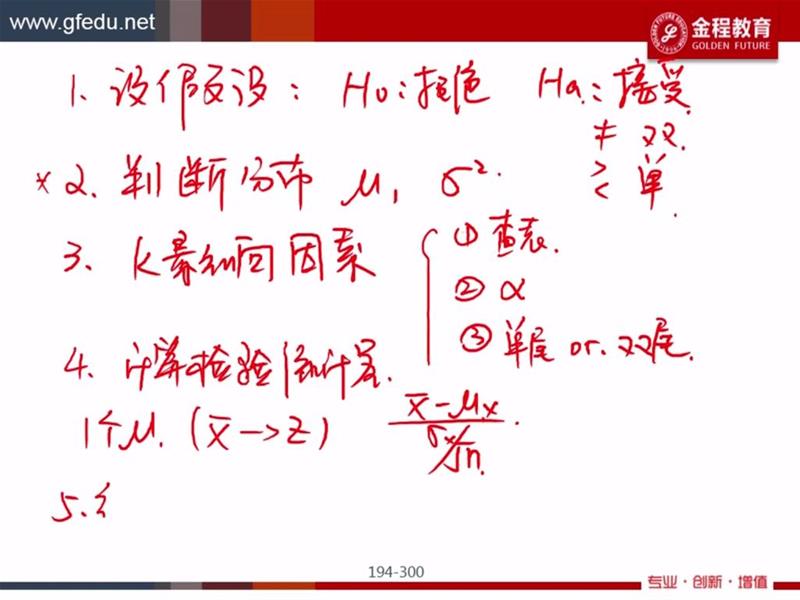 www.gfedu.net
金程教育
GOLDEN FUTURE
1. 设假设: H0:拒绝 Ha:接受
≠ 双.
×2. 判断分布 μ, σ².
> < 单.
3. k 影响因素
① 查表.
② α
③ 单尾 or. 双尾.
4. 计算检验统计量.
1个μ. (x̄→z) x̄-μx / σx/√n.
5.
194-300
专业·创新·增值